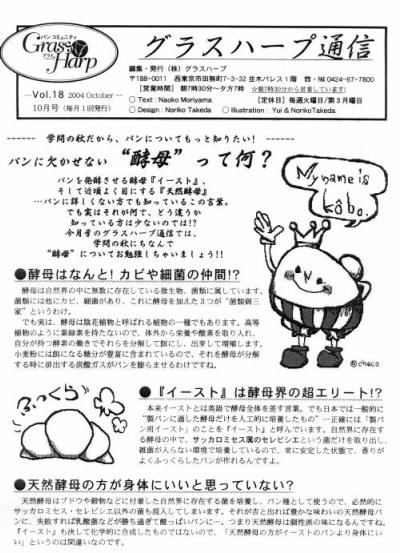 パン コミュニティ
Grass Harp
グラスハープ通信
編集・発行(株)グラスハープ
〒188-0011 西東京市田無町7-3-32 並木パレス1階 ☎・℻ 0424-67-7800
【営業時間】 朝7時30分~夕方7時 ☆朝7時30分から営業しています!
Vol.18 2004 October
10月号(毎月1回発行)
○Text:Naoko Moriyama 【定休日】毎週火曜日/第3月曜日
○Design:Noriko Takeda ○Illustration:Yui & NorikoTakeda
------ 学問の秋だから、パンについてもっと知りたい! ------
パンに欠かせない “酵母”って何?
パンを発酵させる酵母『イースト』、
そして近頃よく目にする『天然酵母』
…パンに詳しくない方でも知っているこの言葉。
でも実はそれが何で、どう違うか
知っている方は少ないのでは!?
今月号のグラスハープ通信では、
学問の秋にちなんで
“酵母”についてお勉強しちゃいましょう!!
My name is kôbo.
©choco
●酵母はなんと! カビや細菌の仲間!?
酵母は自然界の中に無数に存在している微生物、菌類に属しています。
菌類には他にカビ、細菌があり、これに酵母を加えた3つが“菌類御三
家”というわけ。
でも実は、酵母は陰花植物と呼ばれる植物の一種でもあります。高等
植物のように葉緑素を持たないので、体外から栄養や酸素を取り入れ、
自分が持つ酵素の働きでそれらを分解して餌にし、出芽して増殖します。
小麦粉には餌になる糖分が豊富に含まれているので、それを酵母が分解
する時に排出する炭酸ガスがパンを膨らませるわけですね。
ふっくら
●『イースト』は酵母界の超エリート!?
本来イーストとは英語で酵母全体を差す言葉。でも日本では一般的に
“製パンに適した酵母だけを人工的に培養したもの”…正確には「製パ
ン用イースト」のことを『イースト』と呼んでいます。自然界に存在す
る酵母の中で、サッカロミセス属のセレビシエという菌だけを取り出し、
雑菌が入らない環境で培養しているので、常に安定した状態で、香りが
よくふっくらしたパンが作れるんですよ。
●天然酵母の方が身体にいいと思っていない?
天然酵母はブドウや穀物などに付着した自然界に存在する菌を培養し、パン種として使うので、必然的に
サッカロミセス・セレビシエ以外の菌も混入してしまいます。それが吉と出れば豊かな味わいの天然酵母パ
ンに、失敗すれば乳酸菌などが勝ち過ぎて酸っぱいパンに…。つまり天然酵母は個性派の味になるんですね。
『イースト』も決して化学的に合成したものではないので、「天然酵母の方がイーストのパンより身体にい
い」というのは間違いなのです。